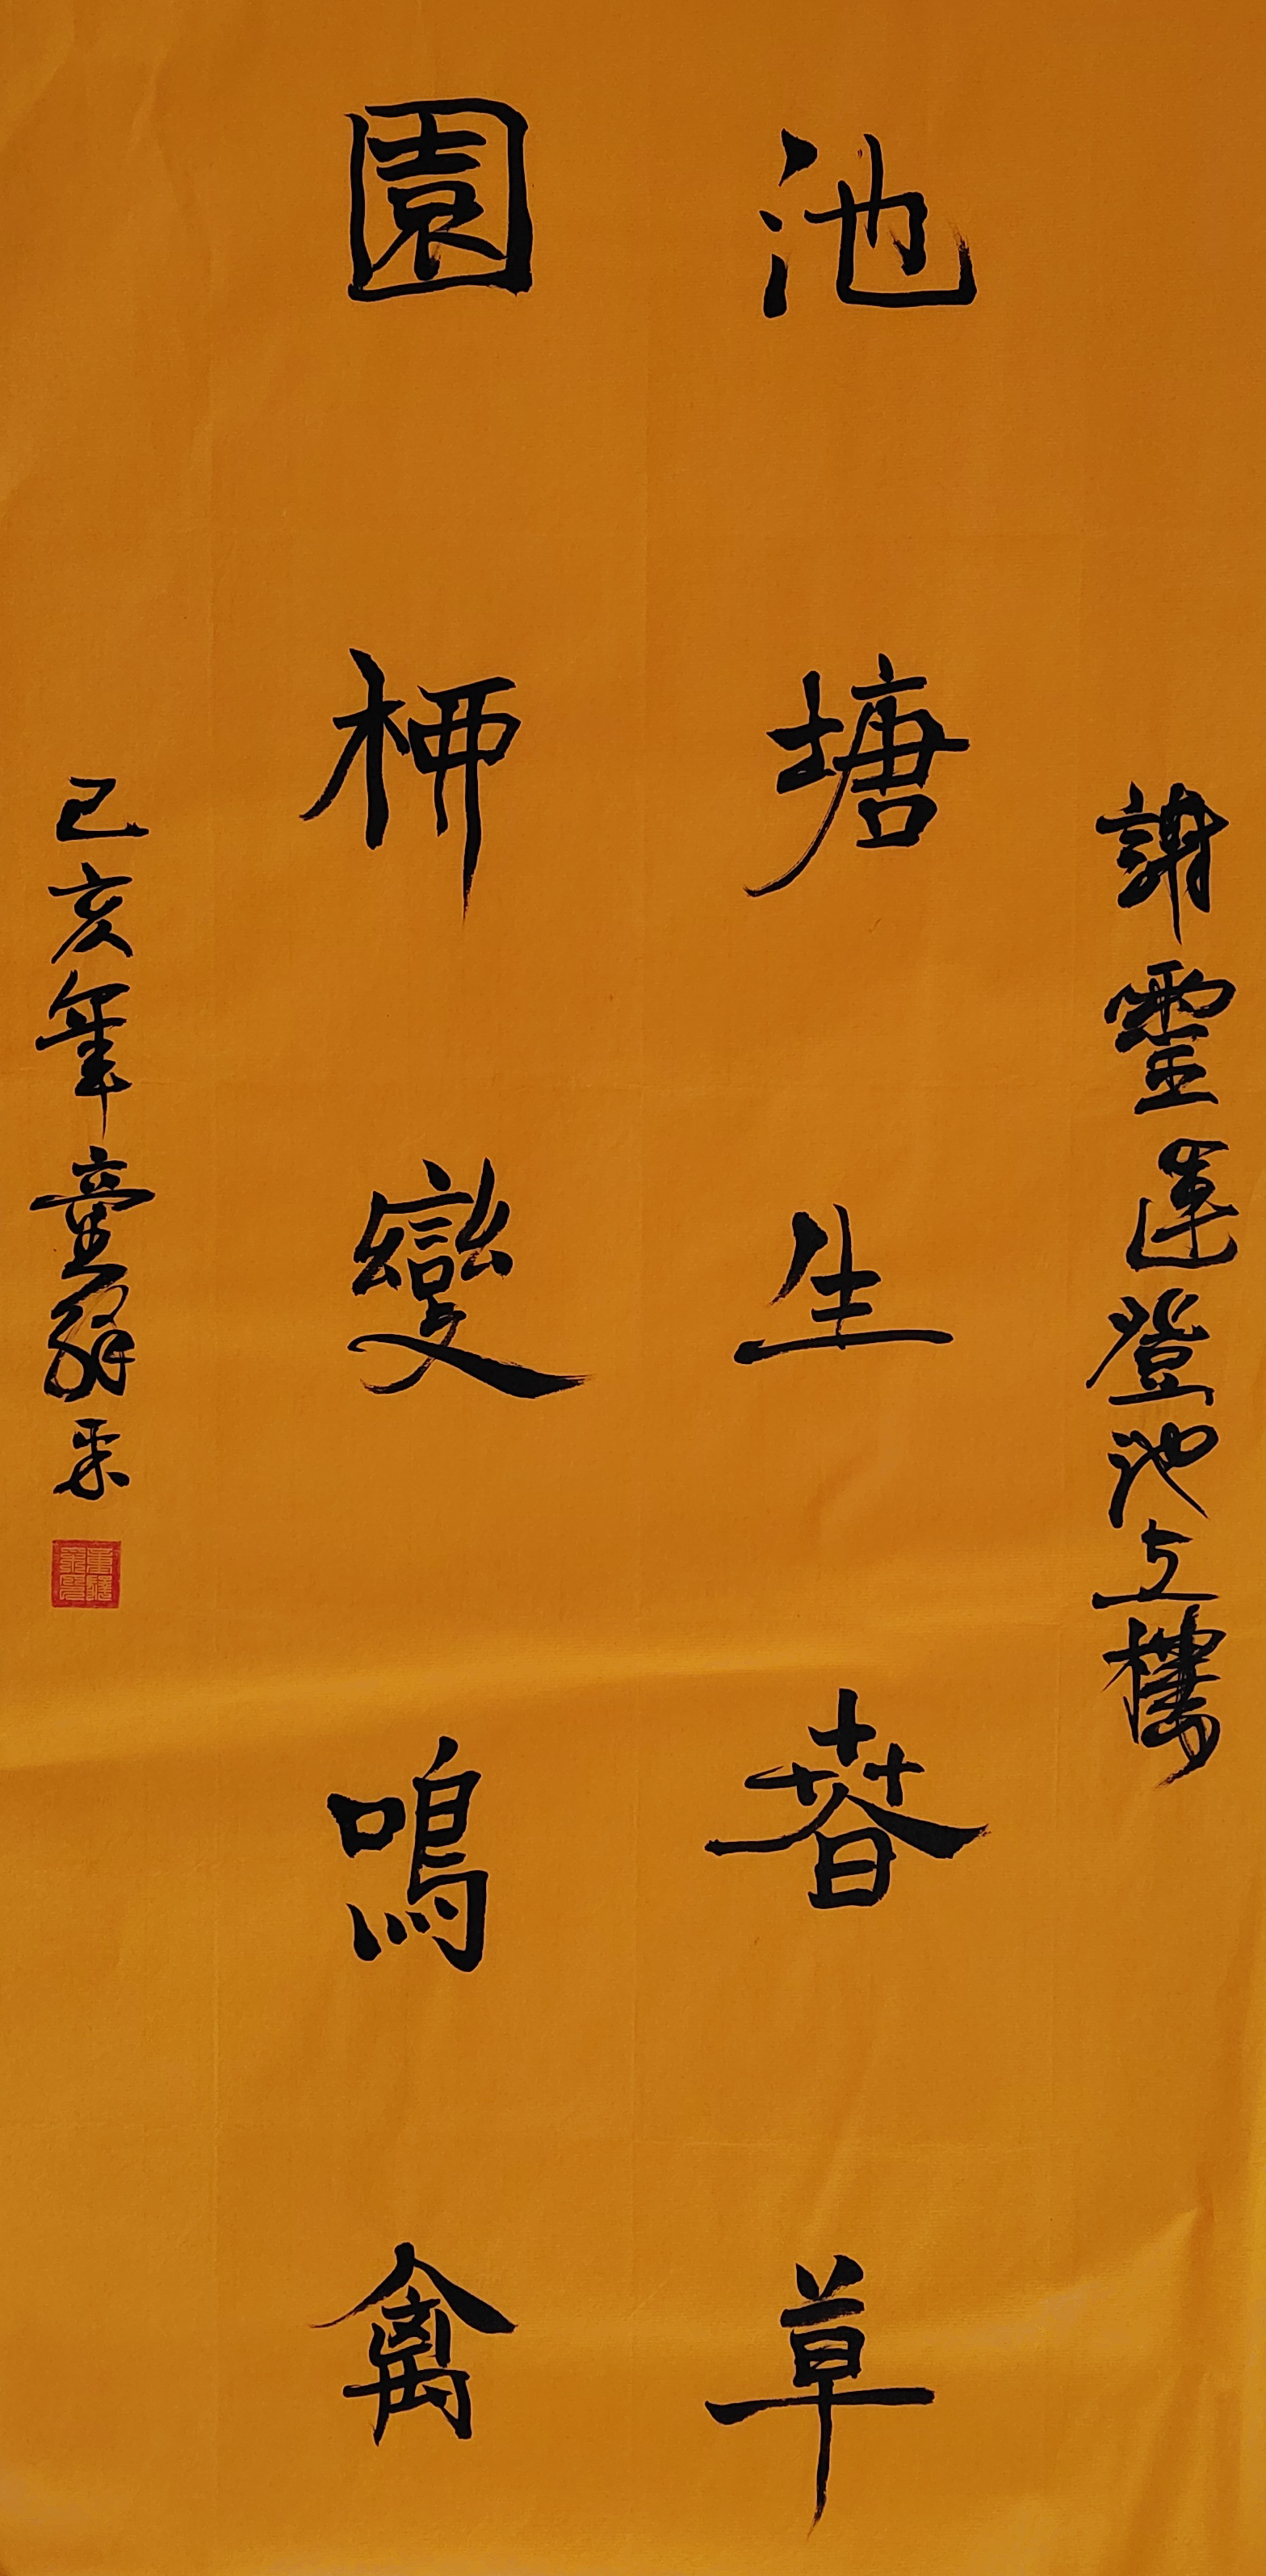 謝靈運登池上樓
池塘生春草
園柳變鳴禽
己亥年童